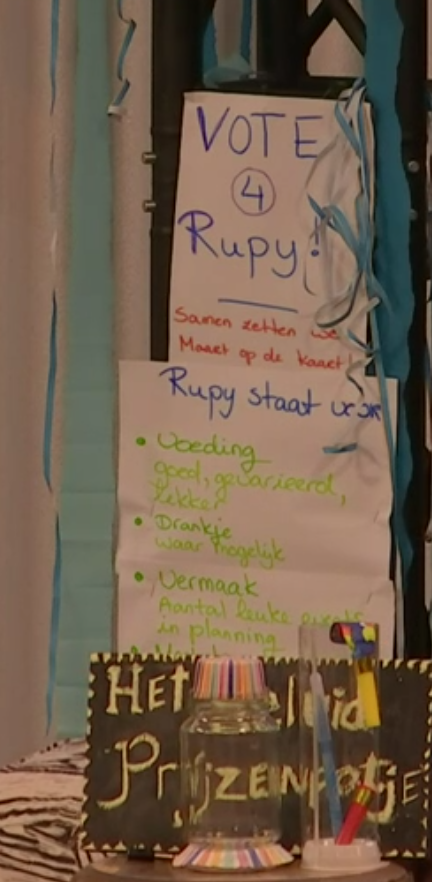 VOTE
4
Rupy!
Samen zetten we
Maart op de kaart!
Rupy staat voor
• Voeding
goed, gevarieerd,
lekker
• Drankje
waar mogelijk
• Vermaak
Aantal leuke events
in planning
HET
Prijzenpotje